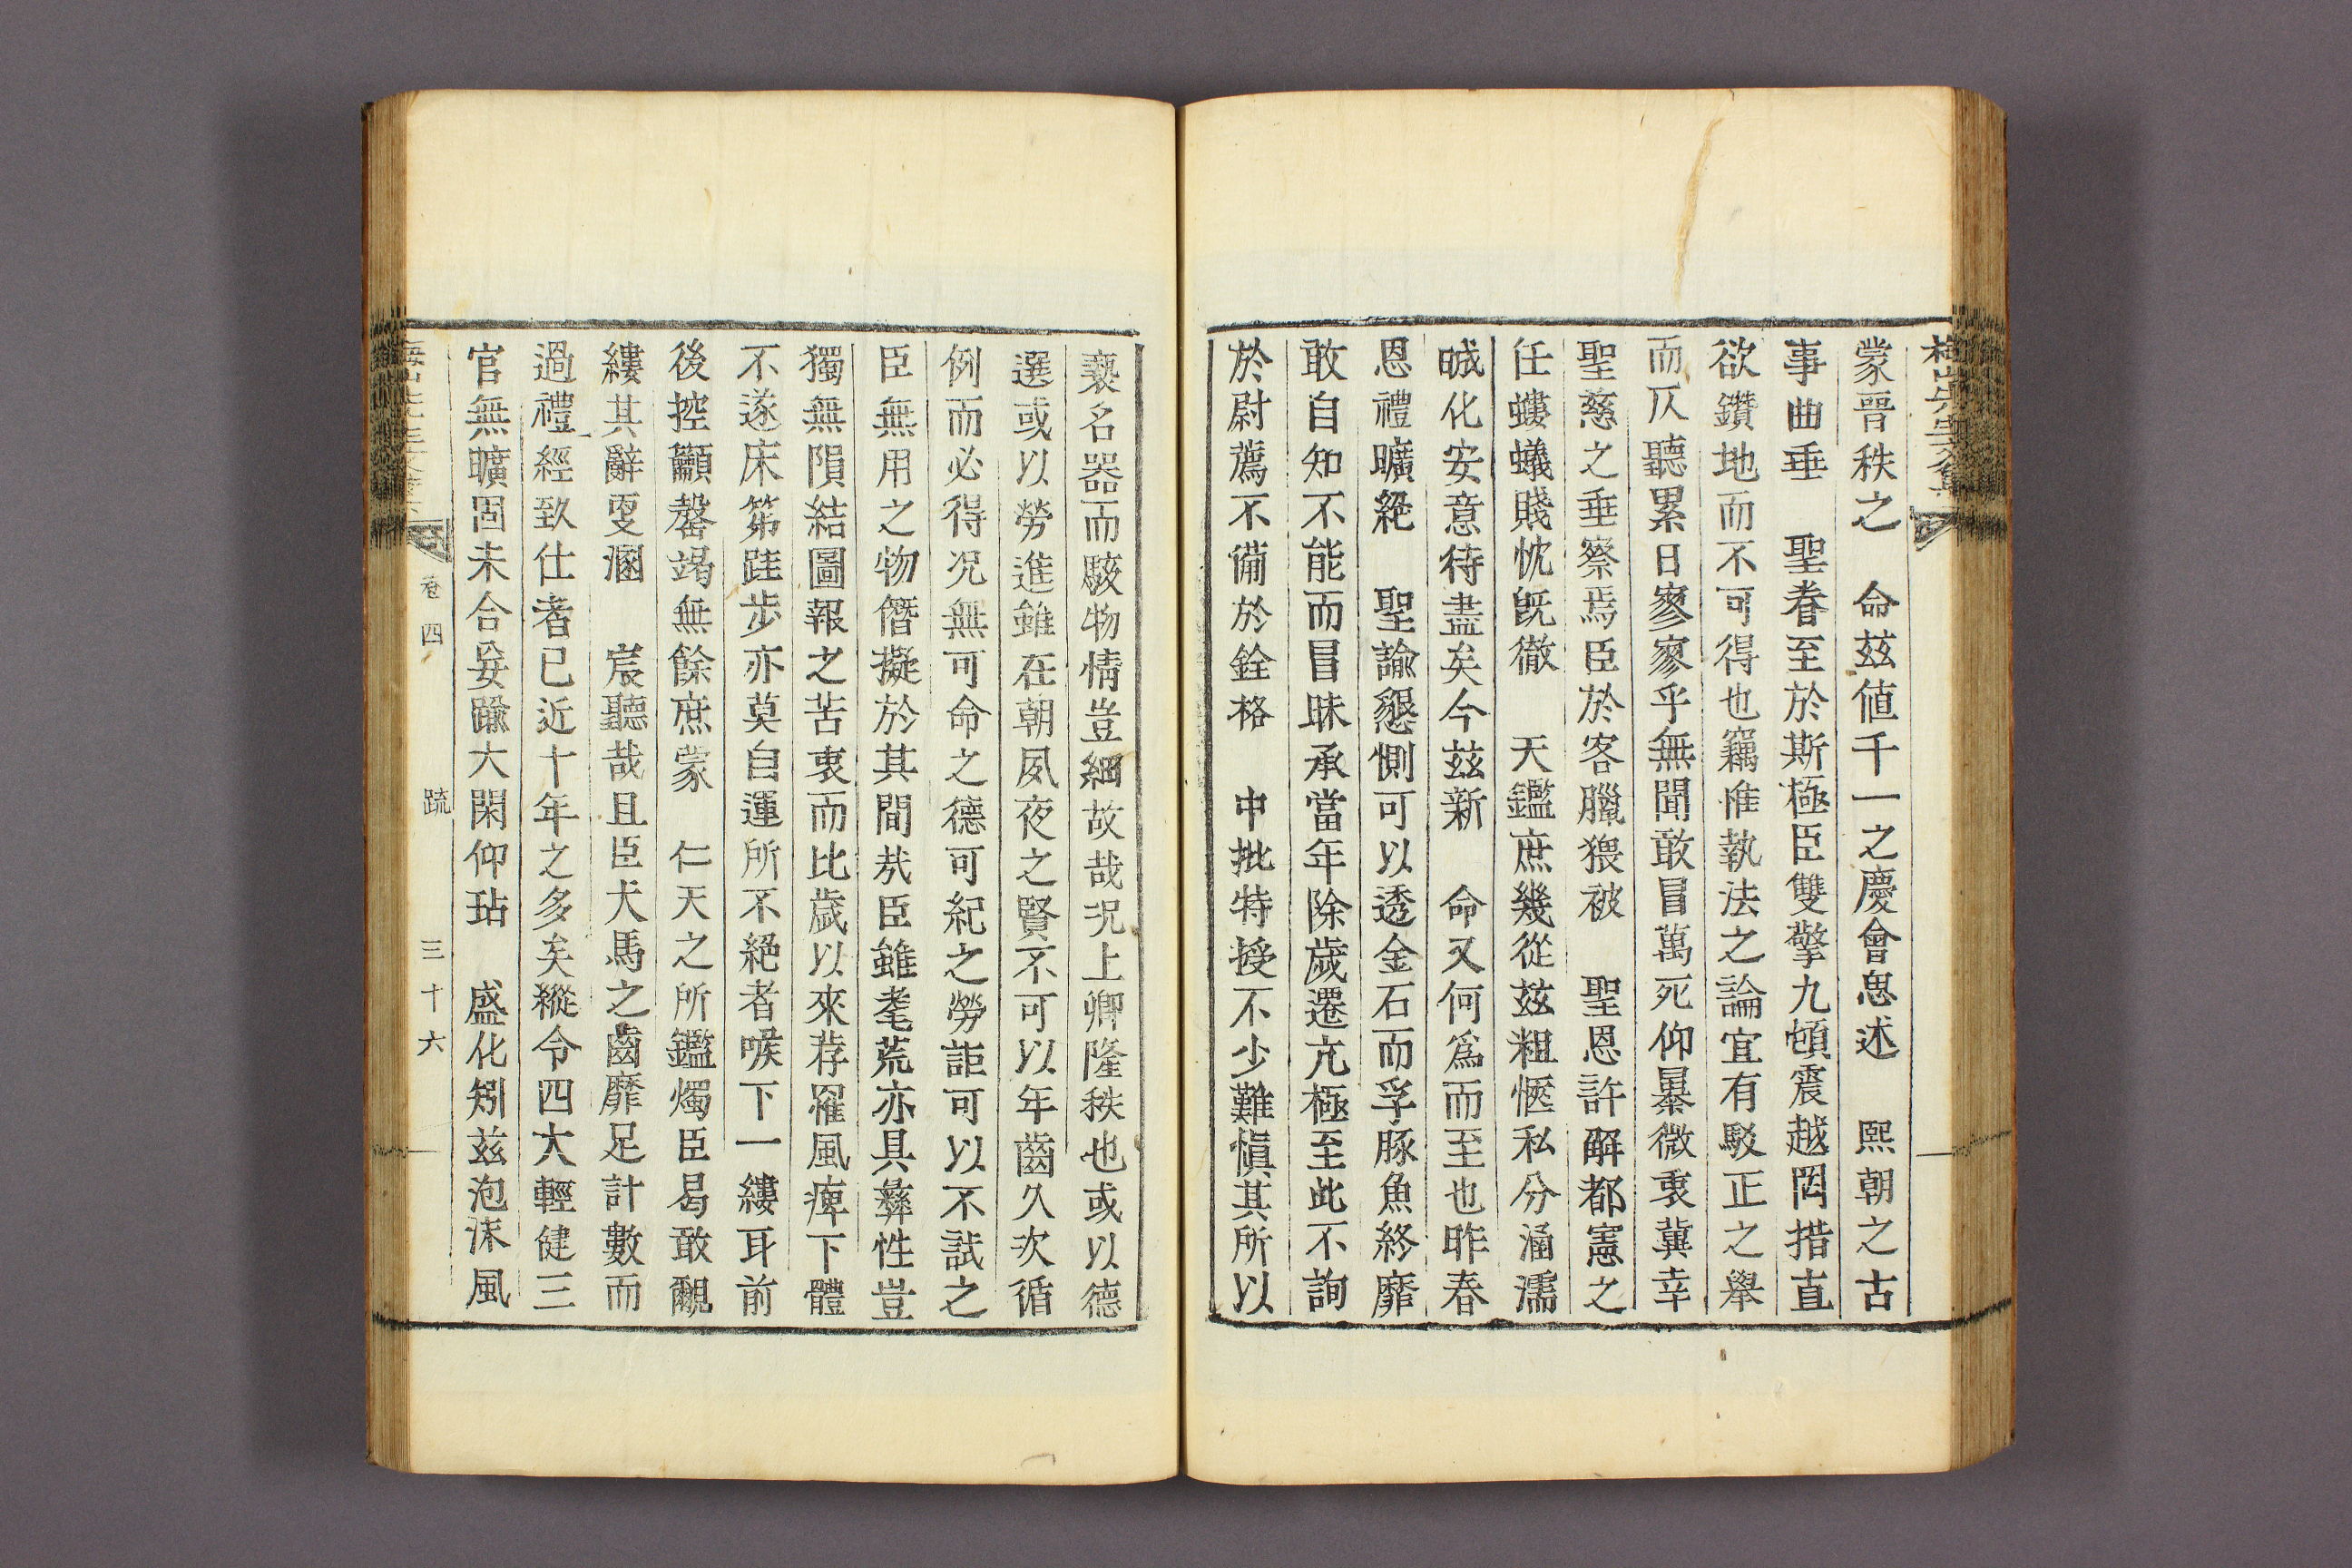 蒙晉秩之 命玆値千一之慶會思述 熙朝之古
事曲垂 聖眷至於斯極臣雙擎九頓震越罔措直
欲鑽地而不可得也竊惟執法之論宜有駁正之擧
而仄聽累日寥寥乎無聞敢冒萬死仰暴微衷冀幸
聖慈之垂察焉臣於客臘猥被 聖恩許解都憲之
任螻蟻賤忱旣徹 天鑑庶幾從玆粗愜私分涵濡
晠化安意待盡矣今玆新 命又何爲而至也昨春
恩禮曠絶 聖諭懇惻可以透金石而孚豚魚終靡
敢自知不能而冒昧承當年除歲遷亢極至此不詢
於尉薦不備於銓格 中批特授不少難愼其所以
褻名器而駭物情豈細故哉况上卿隆秩也或以德
選或以勞進雖在朝夙夜之賢不可以年齒久次循
例而必得况無可命之德可紀之勞詎可以不試之
臣無用之物僭擬於其間㢤臣雖耄荒亦具彝性豈
獨無隕結圖報之苦衷而比歲以來荐罹風痺下體
不遂床笫跬步亦莫自運所不絶者喉下一縷耳前
後控籲罄竭無餘庶蒙 仁天之所鑑燭臣曷敢覼
縷其辭更溷 宸聽哉且臣犬馬之齒靡足計數而
過禮經致仕者已近十年之多矣縱令四大輕健三
官無曠固未合妄踰大閑仰玷 盛化矧玆泡沫風
卷四 疏 三十六